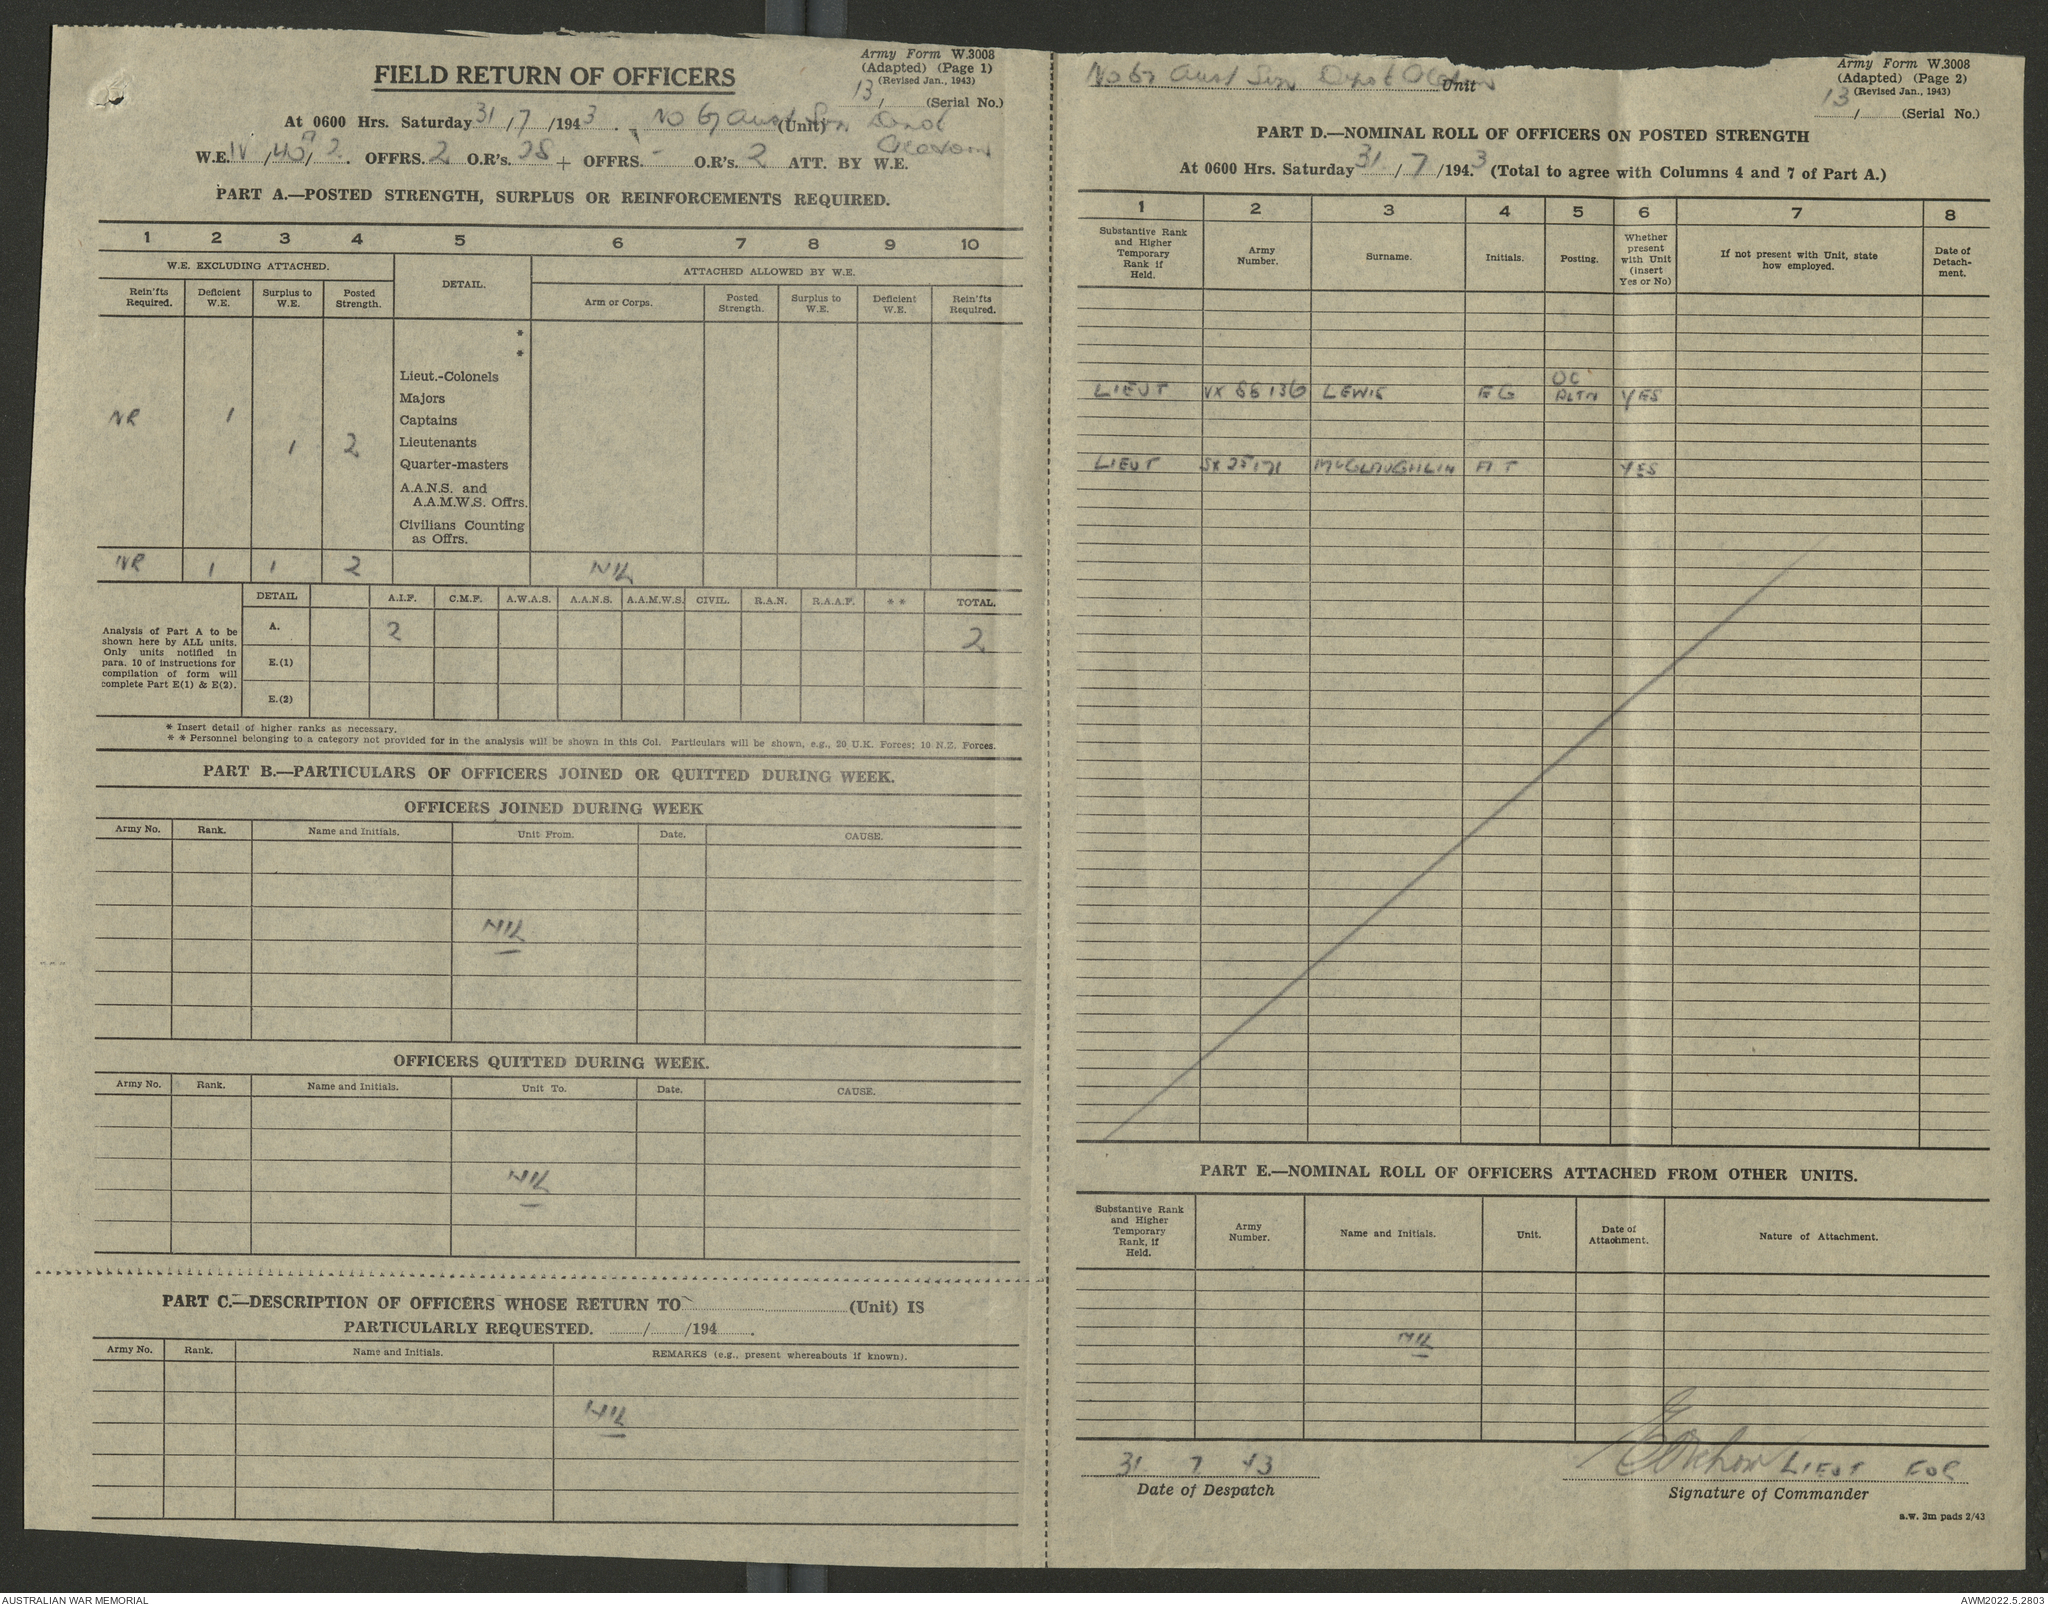 Army Form W.3008
(Adapted) (Page 1)
(Revised Jan., 1943)
FIELD RETURN OF OFFICERS
13 / (Serial No.)
At 0600 Hrs. Saturday 31/7/1943. No 67 Aust Depot (Unit)
W.E. IV /40 /2. OFFRS. 2 O.R's. 28 + OFFRS. - O.R's. 2 ATT. BY W.E.
PART A.—POSTED STRENGTH, SURPLUS OR REINFORCEMENTS REQUIRED.
1 2 3 4 5 6 7 8 9 10
W.E. EXCLUDING ATTACHED. DETAIL. ATTACHED ALLOWED BY W.E.
Rein'fts Required. Deficient W.E. Surplus to W.E. Posted Strength. Arm or Corps. Posted Strength. Surplus to W.E. Deficient W.E. Rein'fts Required.
*
*
Lieut.-Colonels
Majors
NR 1 Captains
1 2 Lieutenants
Quarter-masters
A.A.N.S. and
A.A.M.W.S. Offrs.
Civilians Counting
as Offrs.
NR 1 1 2 NIL
DETAIL A.I.F. C.M.F. A.W.A.S. A.A.N.S. A.A.M.W.S. CIVIL. R.A.N. R.A.A.F. * * TOTAL.
Analysis of Part A to be
shown here by ALL units.
Only units notified in
para. 10 of instructions for
compilation of form will
complete Part E(1) & E(2).
A. 2 2
E.(1)
E.(2)
* Insert detail of higher ranks as necessary.
* * Personnel belonging to a category not provided for in the analysis will be shown in this Col. Particulars will be shown, e.g., 20 U.K. Forces; 10 N.Z. Forces.
PART B.—PARTICULARS OF OFFICERS JOINED OR QUITTED DURING WEEK.
OFFICERS JOINED DURING WEEK
Army No. Rank. Name and Initials. Unit From. Date. CAUSE.
NIL
OFFICERS QUITTED DURING WEEK.
Army No. Rank. Name and Initials. Unit To. Date. CAUSE.
NIL
PART C.—DESCRIPTION OF OFFICERS WHOSE RETURN TO (Unit) IS
PARTICULARLY REQUESTED. / /194 .
Army No. Rank. Name and Initials. REMARKS (e.g., present whereabouts if known).
NIL
No 67 Aust Depot Unit
Army Form W.3008
(Adapted) (Page 2)
(Revised Jan., 1943)
13 / (Serial No.)
PART D.—NOMINAL ROLL OF OFFICERS ON POSTED STRENGTH
At 0600 Hrs. Saturday 31/7/1943 (Total to agree with Columns 4 and 7 of Part A.)
1 2 3 4 5 6 7 8
Substantive Rank and Higher Temporary Rank if Held. Army Number. Surname. Initials. Posting. Whether present with Unit (insert Yes or No) If not present with Unit, state how employed. Date of Detachment.
LIEUT VX 86136 LEWIS EG OC PLTN YES
LIEUT SX 25171 McGLAUGHLIN YES
PART E.—NOMINAL ROLL OF OFFICERS ATTACHED FROM OTHER UNITS.
Substantive Rank and Higher Temporary Rank, if Held. Army Number. Name and Initials. Unit. Date of Attachment. Nature of Attachment.
NIL
31 7 43
Date of Despatch
LIEUT FOR
Signature of Commander
a.w. 3m pads 2/43
AUSTRALIAN WAR MEMORIAL
AWM2022.5.2803